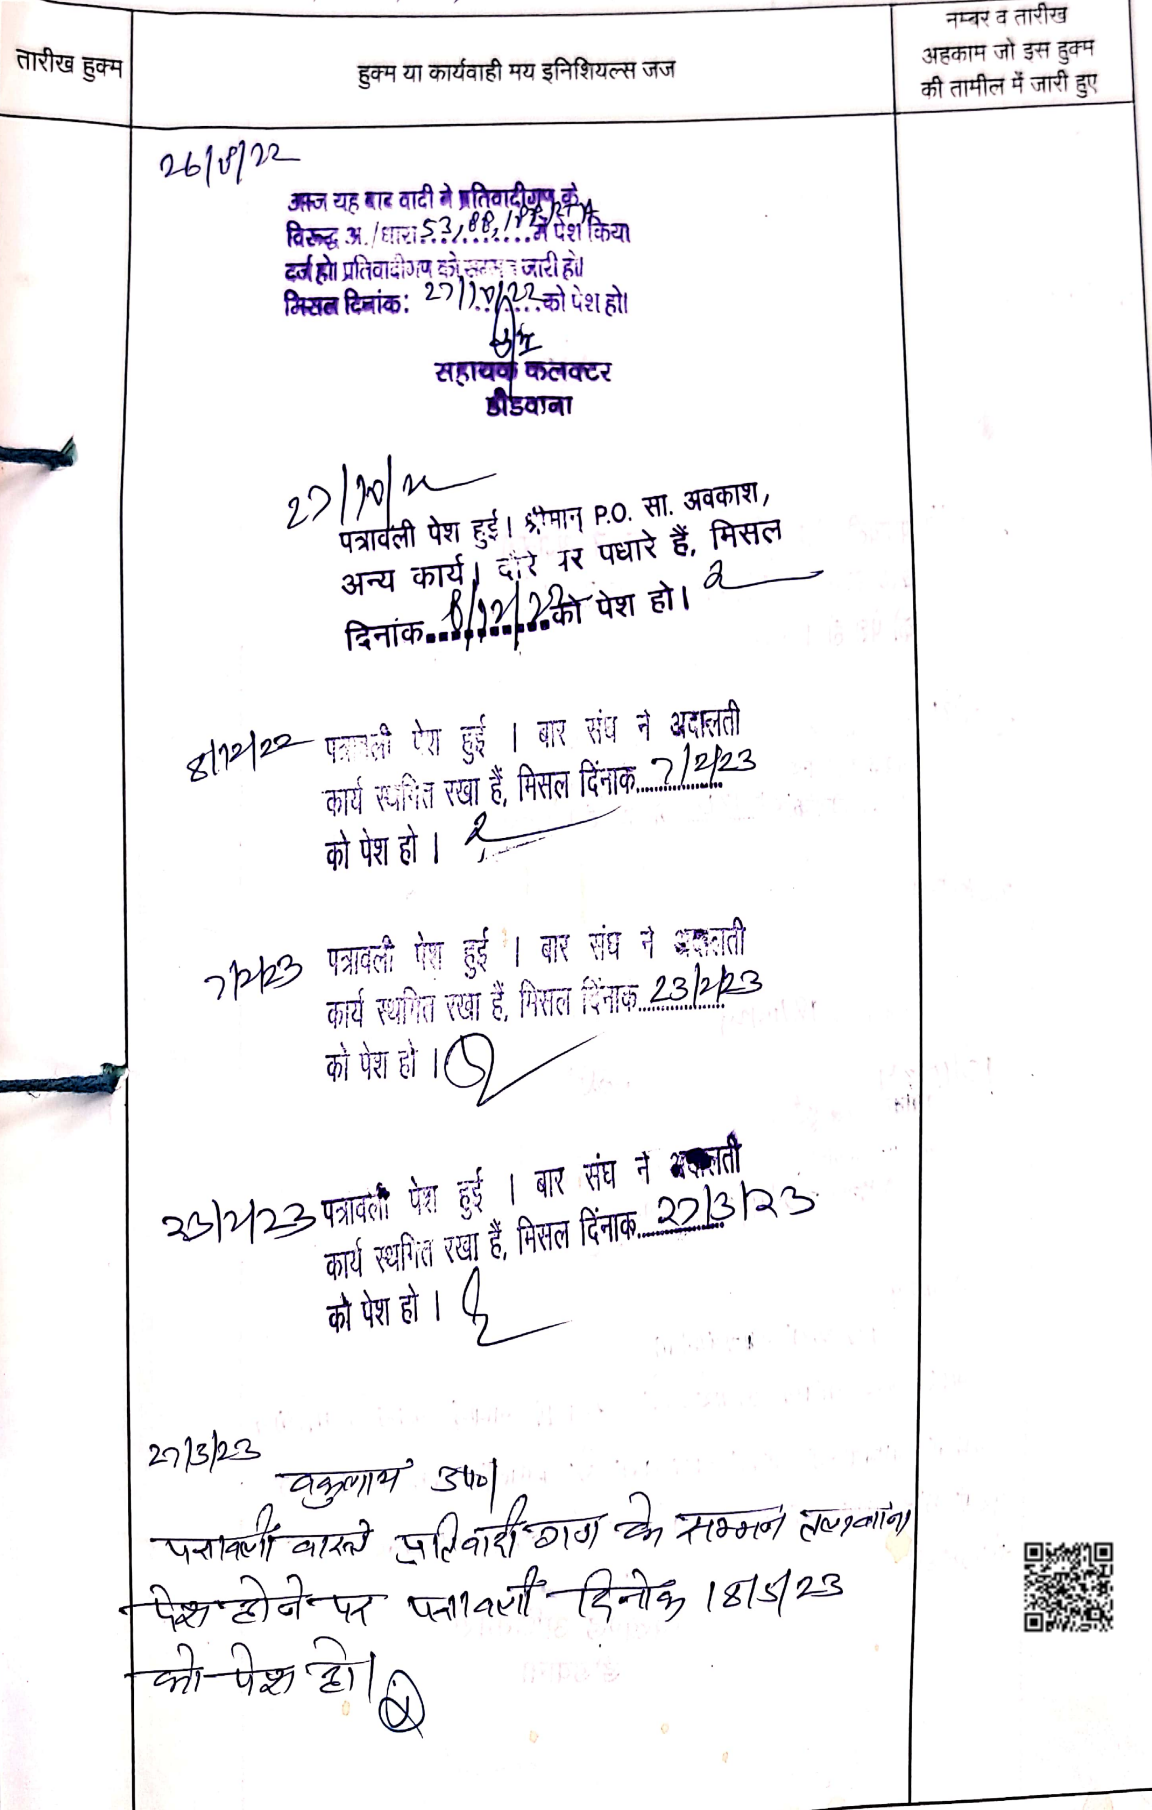 तारीख हुक्म
हुक्म या कार्यवाही मय इनिशियल्स जज
नम्बर व तारीख
अहकाम जो इस हुक्म
की तामील में जारी हुए
26/8/22
आज यह वाद वादी ने प्रतिवादीगण के
विरूद्ध अ./धारा 53, 88, 188 RTA में पेश किया
दर्ज हो। प्रतिवादीगण को सम्मन जारी हो।
मिसल दिनांक: 27/10/22 को पेश हो।
सहायक कलक्टर
डीडवाना
27/10/22
पत्रावली पेश हुई। श्रीमान् P.O. सा. अवकाश,
अन्य कार्य। दौरे पर पधारे हैं, मिसल
दिनांक 8/12/22 को पेश हो।
8/12/22 पत्रावली पेश हुई । बार संघ ने अदालती
कार्य स्थगित रखा हैं, मिसल दिंनाक 7/2/23
को पेश हो ।
7/2/23 पत्रावली पेश हुई । बार संघ ने अदालती
कार्य स्थगित रखा हैं, मिसल दिंनाक 23/2/23
को पेश हो ।
23/2/23 पत्रावली पेश हुई । बार संघ ने अदालती
कार्य स्थगित रखा हैं, मिसल दिंनाक 27/3/23
को पेश हो ।
27/3/23
वकुलाय उप०।
पत्रावली वास्ते प्रतिवादी गण के सम्मन तलवाना
पेश होने पर पत्रावली दिनांक 18/5/23
को पेश हो।